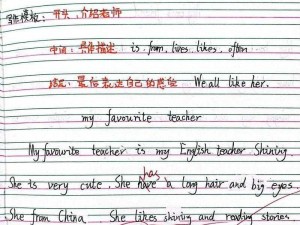 模板：开头：介绍老师
中间：具体描述 is, from, lives, likes, often
结尾：最后表达自己的感情 We all like her.
my favourite teacher
My favourite teacher is my English teacher Shining.
She is very cute. She have has a long hair and big eyes.
She from China. She likes shining and reading stories.